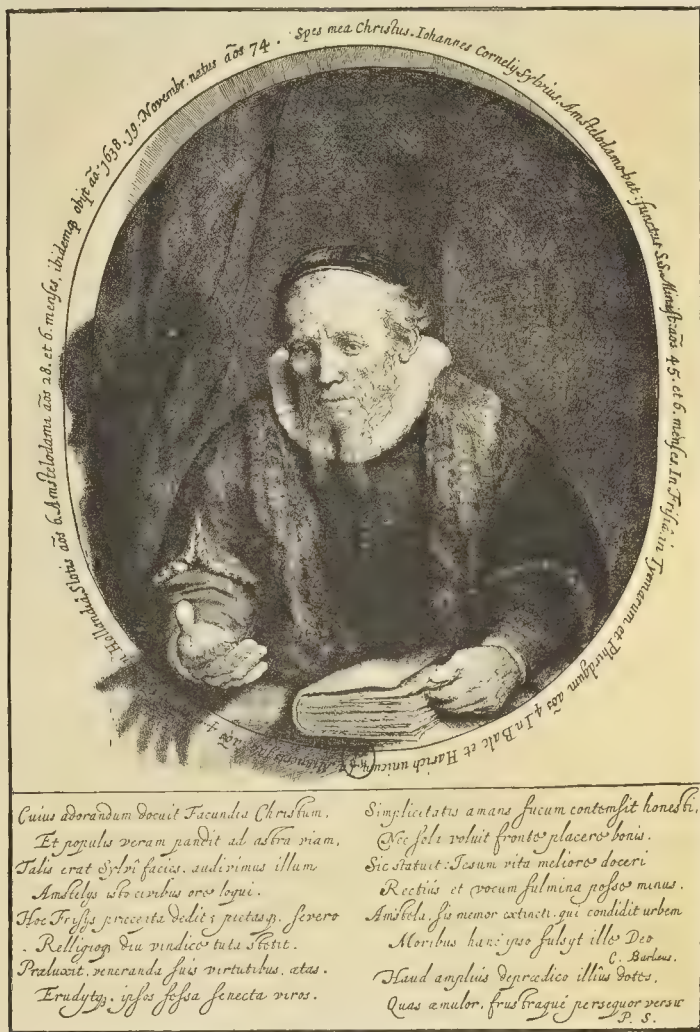 Spes mea Christus. Iohannes Cornelij Sylvius. Amstelodamo-bat: functus S.S. Minist: aõs 45. et 6. menses. In Frisiâ in Tyemarum et Phirdgum aõs 4 In Balc et Harich unicum, in Minnertsga aõs 4. n Hollandiâ Slotis aõs 6. Amstelodami aõs 28. et 6. menses, ibidemq₃ obijt aõ: 1638. 19. Novembr. natus aõs 74.
Cuius adorandum docuit Facundia Christum,
Et populis veram pandit ad astra viam,
Talis erat Sylvî facies. audivimus illum
Amstelys isto civibus ore loqui.
Hoc Frisijs præcepta dedit; pietasq₃ severo
Relligioq₃ diu vindice tuta stetit.
Præluxit, veneranda suis virtutibus, ætas.
Erudytq₃ ipsos fessa senecta viros.
Simplicitatis amans fucum contemsit honesti,
Nec solâ voluit fronte placere bonis.
Sic statuit: Iesum vita meliore doceri
Rectiùs et vocum fulmina posse minus.
Amstela, sis memor extincti qui condidit urbem
Moribus hanc ipso fulsyt ille Deo
C. Barlæus.
Haud amplius deprædico illîus dotes,
Quas æmulor, frustraque persequor versu
P. S.